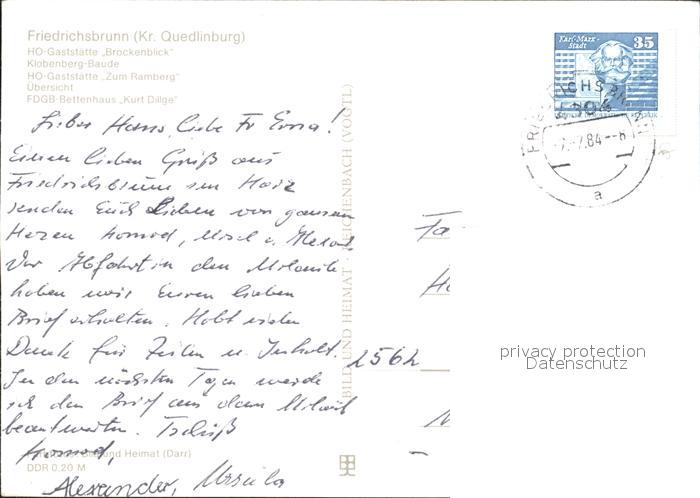 Friedrichsbrunn (Kr. Quedlinburg)
HO-Gaststätte „Brockenblick"
Klobenberg-Baude
HO-Gaststätte „Zum Ramberg"
Übersicht
FDGB-Bettenhaus „Kurt Dillge"
Lieber Hans, liebe Fr Erna!
Einen lieben Gruß aus
Friedrichsbrunn im Harz
senden Euch Lieben von ganzem
Herzen Konrad, Ursel u. Alexand.
Vor Abfahrt in den Urlaub
haben wir Euren lieben
Brief erhalten. Habt vielen
Dank für Zeilen u. Inhalt.
In den nächsten Tagen werde
ich den Brief aus dem Urlaub
beantworten. Tschüß
Konrad,
Alexander, Ursula
Bild und Heimat (Darr)
DDR 0,20 M
BILD UND HEIMAT · REICHENBACH (VOGTL)
Karl-Marx-
Stadt
35
-7.-7.84--8
a
Fa
2562
privacy protection
Datenschutz